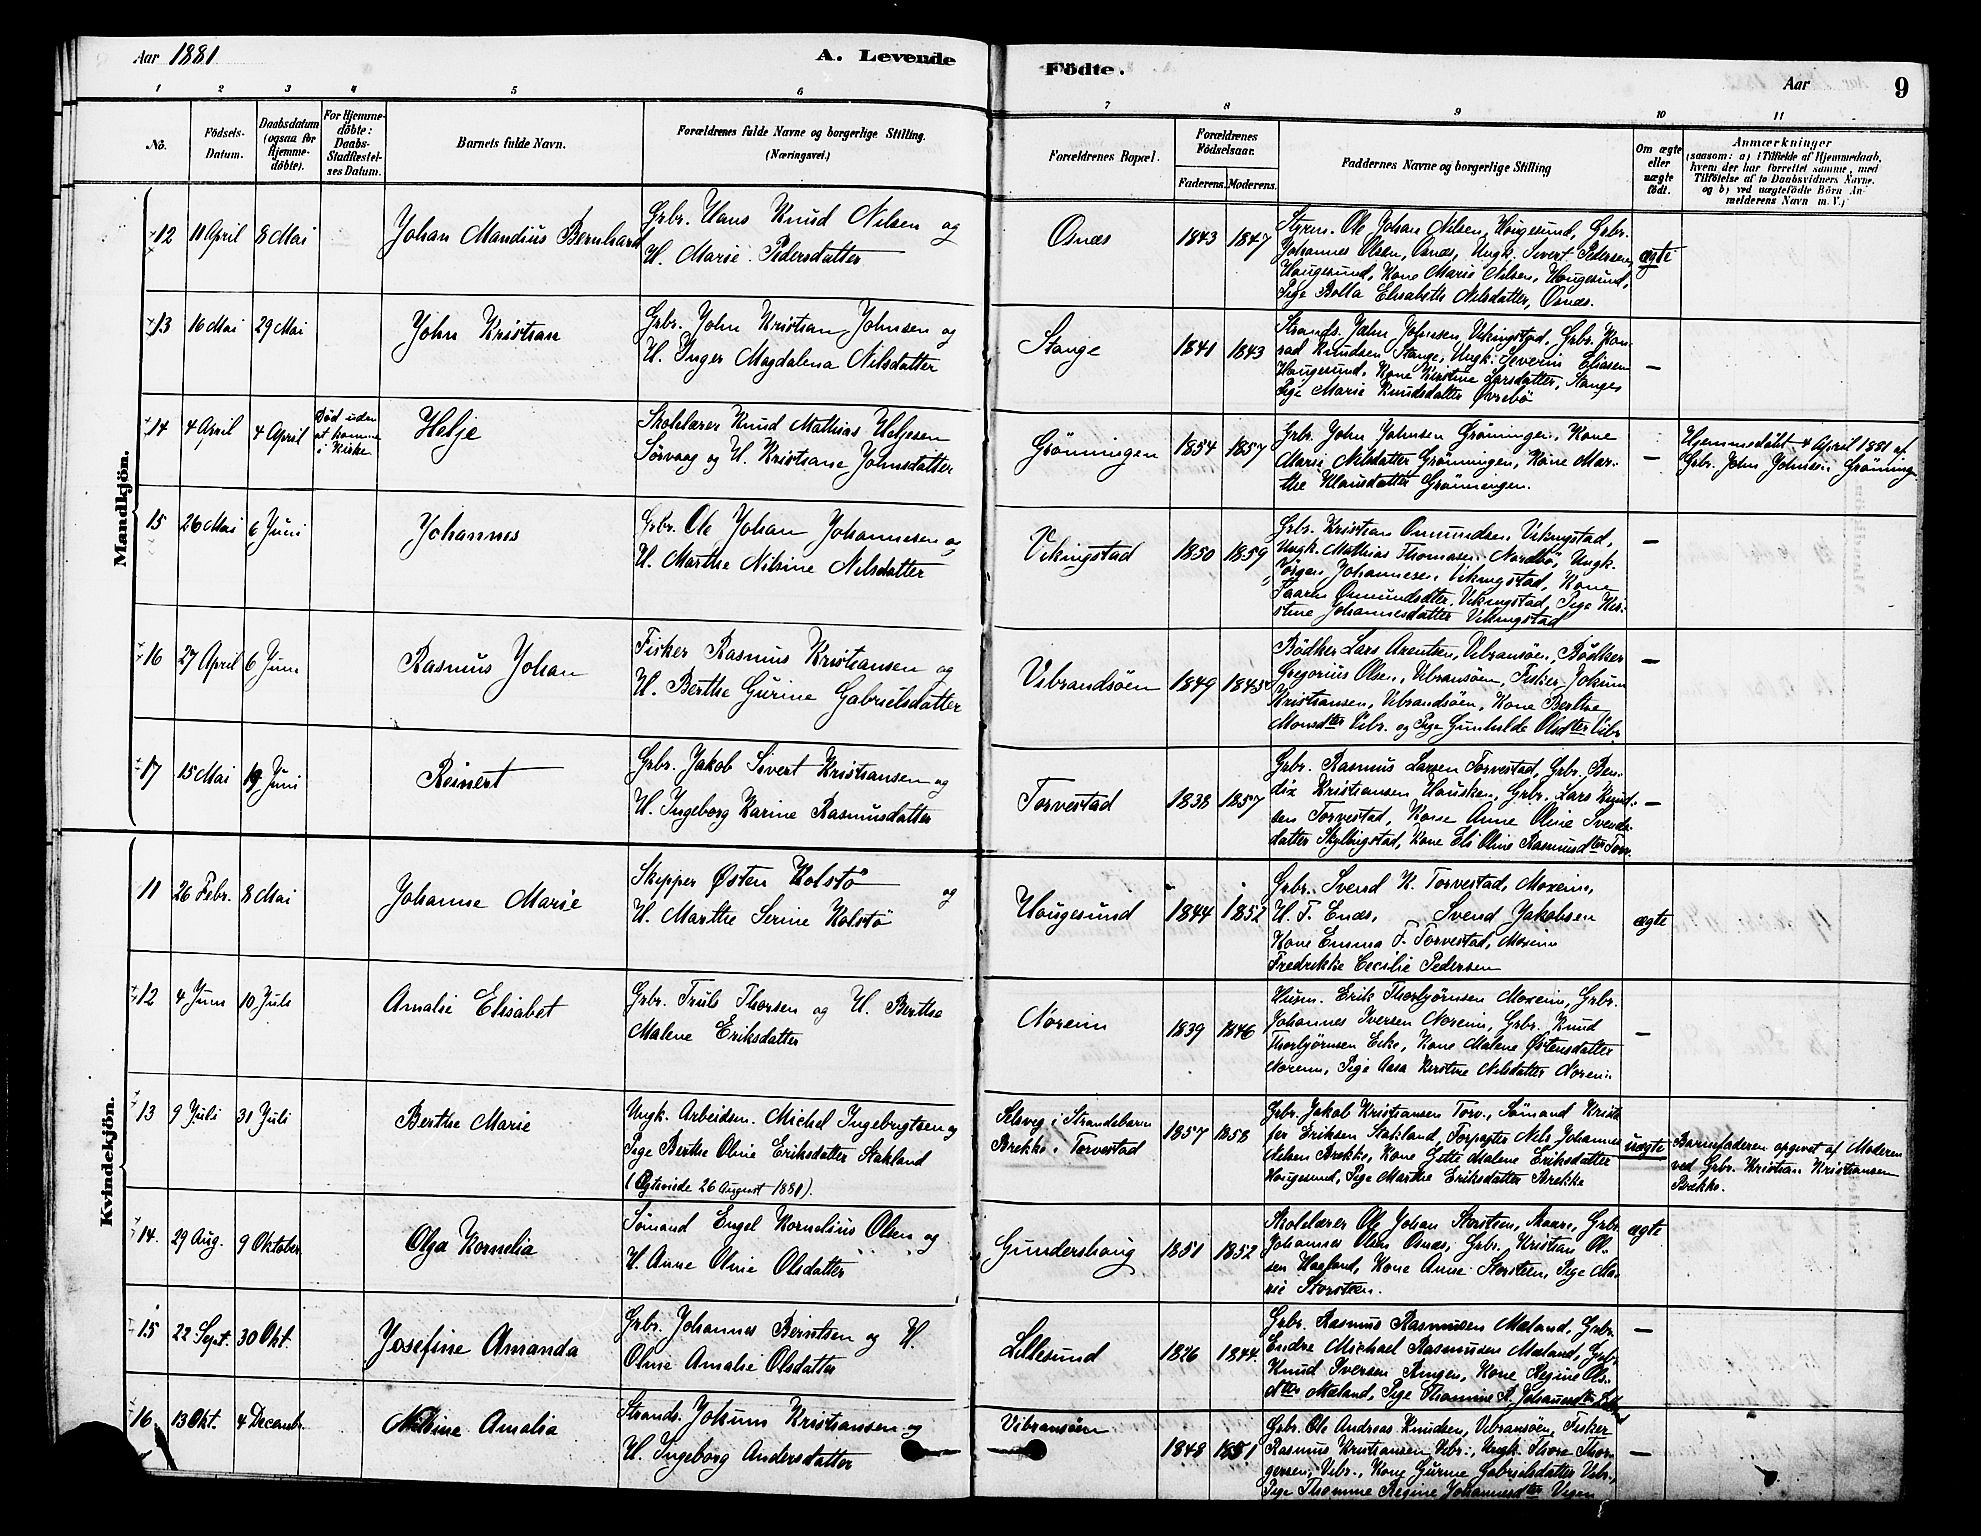 Aar 1881
A. Levende
Födte.
Aar
9
1 2 3 4 5 6 7 8 9 10 11
No.
Födsels-
Datum.
Daabsdatum
(ogsaa for
Hjemme-
döbte).
For Hjemme-
döbte:
Daabs-
Stadfæstel-
ses Datum.
Barnets fulde Navn.
Forældrenes fulde Navne og borgerlige Stilling.
(Næringsvei.)
Forældrenes Bopæl.
Forældrenes
Födselsaar.
Faderens. Moderens.
Faddernes Navne og borgerlige Stilling
Om ægte
eller
uægte
födt.
Anmærkninger
(saasom: a) i Tilfælde af Hjemmedaab,
hvem der har forrettet samme, med
Tilföielse af to Daabsvidners Navne,
og b) ved uægtefödte Börn An-
melderens Navn m. V.)
Mandkjön.
12 11 April 8 Mai
Johan Mandius Bernhard
Grbr. Hans Knud Nilsen og
H. Marie Pedersdatter
Osnæs
1843 1847
Styrm. Ole Johan Nilsen, Hougesund, Grbr.
Johannes Olsen, Osnæs, Ungk. Sivert Pedersen,
Hougesund, Kone Marie Nilsen, Hougesund,
Pige Bolla Elisabeth Nilsdatter, Osnæs.
ægte
13 16 Mai 29 Mai
John Kristian
Grbr. John Kristian Johnsen og
H. Inger Magdalena Nilsdatter
Stange
1841 1843
Strands. John Johnsen Vikingstad, Grbr. Kon-
rad Knudsen Stange, Ungk. Severin Eliasen
Hougesund, Kone Kirstine Larsdatter, Stange,
Pige Marie Knudsdatter Øvrebö
—
14 4 April 4 April
Död uden
at komme
i Kirke
Helje
Skolelærer Knud Mathias Heljesen
Sørvaag og H. Kristiane Johnsdatter
Grönningen
1854 1857
Grbr. John Johnsen Grönningen, Kone
Marie Nilsdatter Grönningen, Kone Mar-
the Klausdatter Grönningen.
—
Hjemmedöbt 4 April 1881 af
Grbr. John Johnsen Grönning
15 26 Mai 6 Juni
Johannes
Grbr. Ole Johan Johannesen og
H. Marthe Nilsine Nilsdatter
Vikingstad
1850 1859
Grbr. Kristian Omundsen, Vikingstad,
Ungk. Mathias Thomasen Nordbö, Ungk.
Jörgen Johannesen Vikingstad, Kone
Taaren Omundsdatter, Vikingstad, Pige Kir-
stine Johannesdatter Vikingstad
—
16 27 April 6 Juni
Rasmus Johan
Fisker Rasmus Kristiansen og
H. Berthe Gurine Gabrielsdatter
Vibrandsöen
1849 1845
Bödker Lars Axentsen, Vibransöen, Bödker
Gregorius Olsen, Vibransöen, Fisker Jokum
Kristiansen, Vibrandsöen, Kone Berthe
Monsdtter Vibr. og Pige Gunhilde Olsdtter Vibr.
—
17 15 Mai 19 Juni
Reinert
Grbr. Jakob Sivert Kristiansen og
H. Ingeborg Karine Rasmusdatter
Torvestad
1838 1857
Grbr. Rasmus Larsen Torvestad, Grbr. Ben-
dix Kristiansen Hausken, Grbr. Lars Knud-
sen Torvestad, Kone Anne Oline Svends-
datter Skyllingstad, Kone Eli Oline Rasmusdtter Torv.
—
Kvindekjön.
11 26 Febr. 8 Mai
Johanne Marie
Skipper Østen Kolstø og
H. Marthe Serine Kolstø
Hougesund
1844 1852
Grbr. Svend K. Torvestad, Moxeim,
H. T. Endes, Svend Jakobsen
Kone Emma F. Torvestad, Moxeim
Fredrikke Cecilie Pedersen
ægte
12 4 Juni 10 Juli
Amalie Elisabet
Grbr. Truls Thorsen og H. Berthe
Malene Eriksdatter
Noreim
1839 1846
Husm. Erik Thorbjörnsen Moxeim, Grbr.
Johannes Iversen Noreim, Grbr. Knud
Thorbjörnsen Eike, Kone Malene Østensdatter
Noreim, Pige Aasa Kirstine Nilsdatter Noreim
—
13 9 Juli 31 Juli
Berthe Marie
Ungk. Arbeidsm. Michel Ingebrigtsen og
Pige Berthe Oline Eriksdatter Stakland
(Ægteviede 26 August 1881).
i Strandebarm
Brekke i Torvestad
1857 1858
Grbr. Jakob Kristiansen Torv., Sömand Krist-
fer Eriksen Stakland, Forpagter Nils Johannes
Nilsen Brekke, Kone Gitte Malene Eriksdatter
Hougesund, Pige Marthe Eriksdatter Brekke
uægte
Barnefaderen opgivet af Moderen
ved Grbr. Kristian Kristiansen
Brække.
14. 29 Aug. 9 Oktober
Olga Kornelia
Sömand Engel Kornelius Olsen og
H. Anne Oline Olsdatter
Gundershaug
1851 1852
Skolelærer Ole Johan Storsteen, Maare, Grbr.
Johannes Olsen Osnæs, Grbr. Kristian Ol-
sen Haaland, Kone Anne Storsteen, Pige Ma-
rie Storsteen.
ægte
15 22 Sept. 30 Okt.
Josefine Amanda
Grbr. Johannes Berntsen og H.
Oline Amalie Olsdatter
Lillesund
1826 1844
Grbr. Rasmus Rasmussen Mæland, Grbr.
Endre Michael Rasmussen Mæland, Grbr.
Knud Iversen Ringen, Kone Regine Ols-
dtter Mæland, Pige Thomine R. Johannesdtter
—
16 13 Okt. 4 Decembr.
Nilsine Amalia
Strands. Jokum Kristiansen og
H. Ingeborg Andersdatter
Vibransöen
1848 1851
Grbr. Ole Andreas Knudsen, Vibransöen, Fisker
Rasmus Kristiansen Vibr., Ungk. Thore Thor-
gersen, Vibr., Kone Gurine Gabrielsdatter Vibr.,
Pige Thomine Regine Johannesdtter Vegen
—